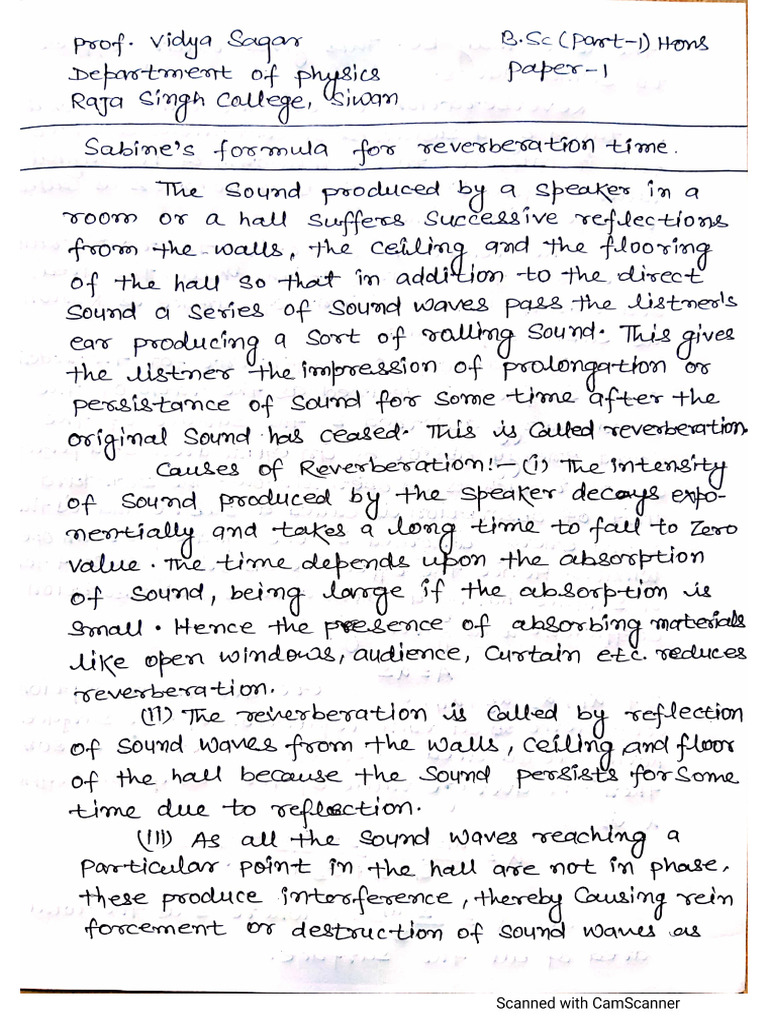 Prof. Vidya Sagar
B.Sc (Part-1) Hons
Department of Physics
Paper-1
Raja Singh College, Siwan
Sabine's formula for reverberation time.
The Sound produced by a speaker in a
room or a hall suffers successive reflections
from the walls, the ceiling and the flooring
of the hall so that in addition to the direct
sound a series of sound waves pass the listner's
ear producing a sort of rolling sound. This gives
the listner the impression of prolongation or
persistance of sound for some time after the
original sound has ceased. This is called reverberation.
Causes of Reverberation:- (i) The intensity
of sound produced by the speaker decays expo-
nentially and takes a long time to fall to zero
value. The time depends upon the absorption
of sound, being large if the absorption is
small. Hence the presence of absorbing materials
like open windows, audience, curtain etc. reduces
reverberation.
(II) The reverberation is called by reflection
of sound waves from the walls, ceiling and floor
of the hall because the sound persists for some
time due to reflection.
(III) As all the sound waves reaching a
particular point in the hall are not in phase,
these produce interference, thereby causing rein
forcement or destruction of sound waves as
Scanned with CamScanner